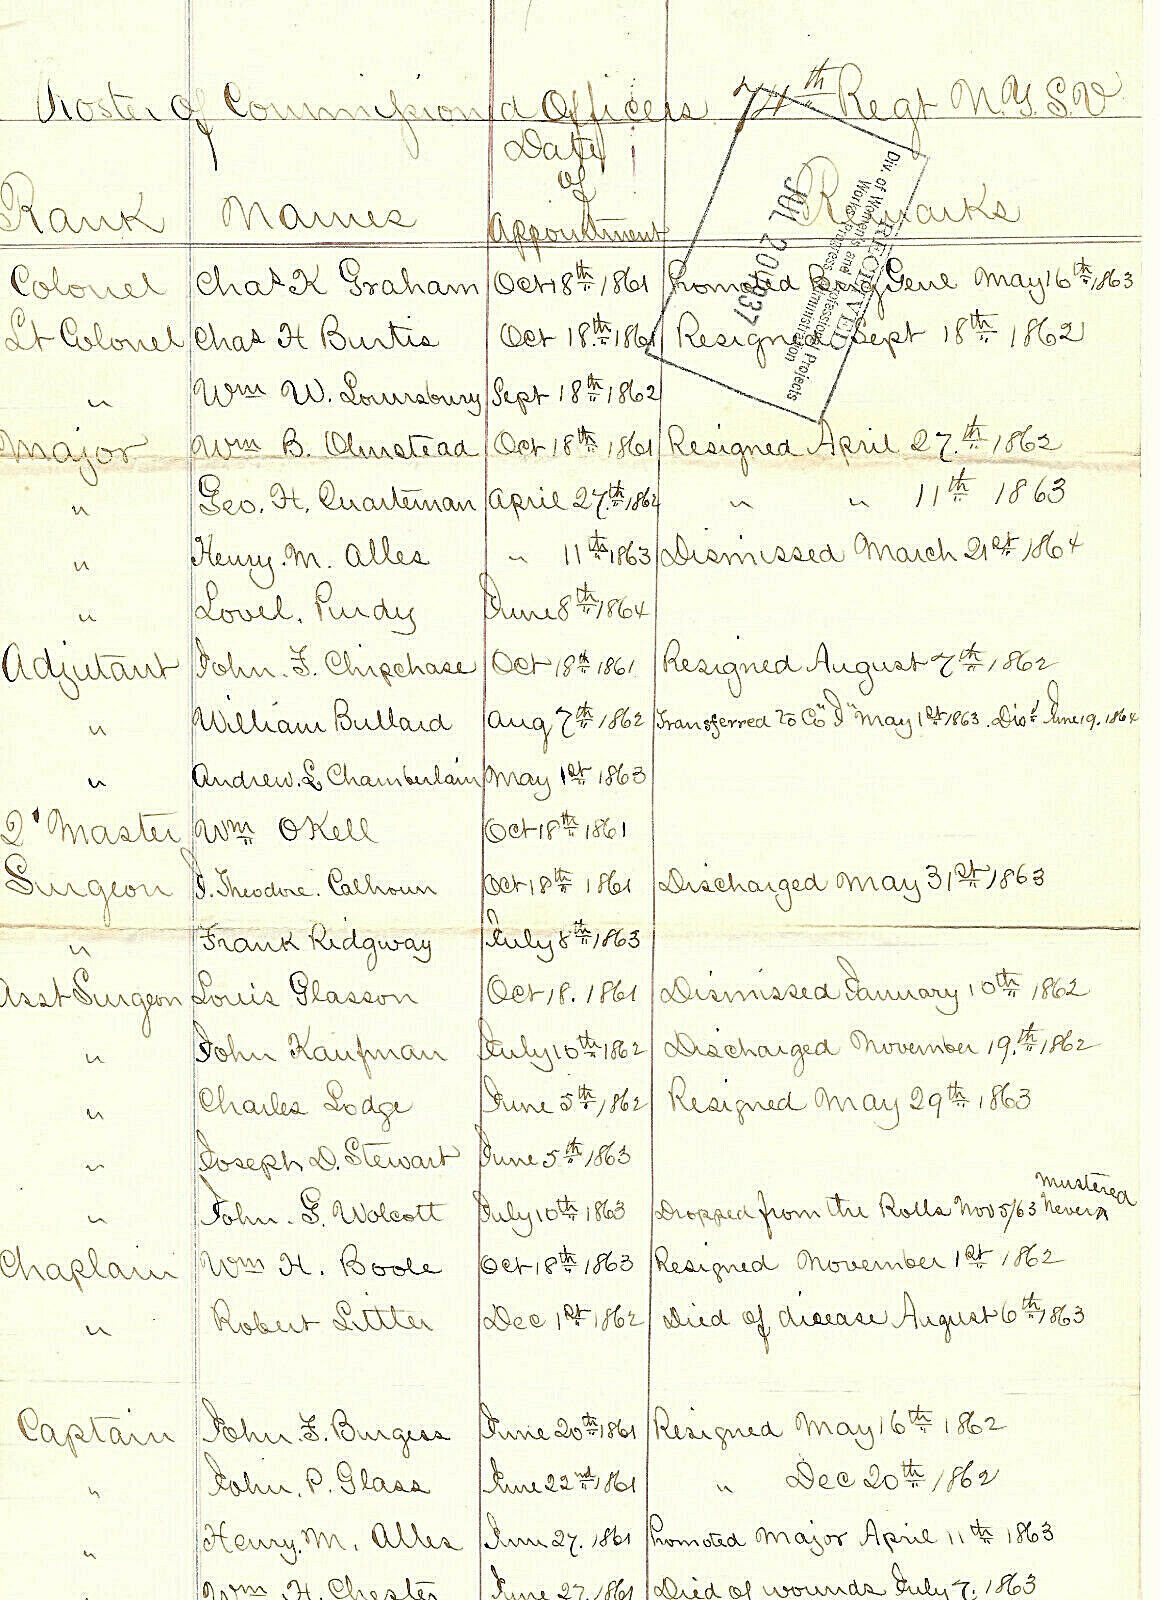 Roster of Commissiond Officers 74th Regt N.Y.S.V
Rank Names Date of Appointment Remarks
RECEIVED
JUL 20 1937
Works Progress Administration
Div. of Women's and Professional Projects
Colonel Chas K Graham Oct 18th 1861 Promoted Brig Genl May 16th 1863
Lt Colonel Chas H Burtis Oct 18.th 1861 Resigned Sept 18th 1862
" Wm W. Lounsbury Sept 18th 1862
Major Wm B. Olmstead Oct 18th 1861 Resigned April 27.th 1862
" Geo. H. Quarteman April 27.th 1862 " " 11th 1863
" Henry. M. Alles " 11th 1863 Dismissed March 21st 1864
" Lovel. Purdy June 8th 1864
Adjutant John. F. Chipchase Oct 18th 1861 Resigned August 7th 1862
" William Bullard Aug 7th 1862 Transferred To Co "I" May 1st 1863. Disd June 19. 1864
" Andrew. L Chamberlain May 1st 1863
Q' Master Wm OKell Oct 18th 1861
Surgeon J. Theodore. Calhoun Oct 18th 1861 Discharged May 31st 1863
" Frank Ridgway July 8th 1863
Asst Surgeon Louis Glasson Oct 18. 1861 Dismissed January 10th 1862
" John Kaufman July 10th 1862 Discharged November 19.th 1862
" Charles Lodge June 5th 1862 Resigned May 29th 1863
" Joseph D. Stewart June 5th 1863
" John. G. Wolcott July 10th 1863 Dropped from the Rolls Nov 5/63 Never mustered
Chaplain Wm H. Boole Oct 18th 1863 Resigned November 1st 1862
" Robert Littler Dec 1st 1862 Died of disease August 6th 1863
Captain John. F. Burgess June 20th 1861 Resigned May 16th 1862
" John. P. Glass June 22nd 1861 " Dec 20th 1862
" Henry. M. Alles Jun 27. 1861 Promoted Major April 11th 1863
" Wm H. Chester June 27. 1861 Died of wounds July 7. 1863